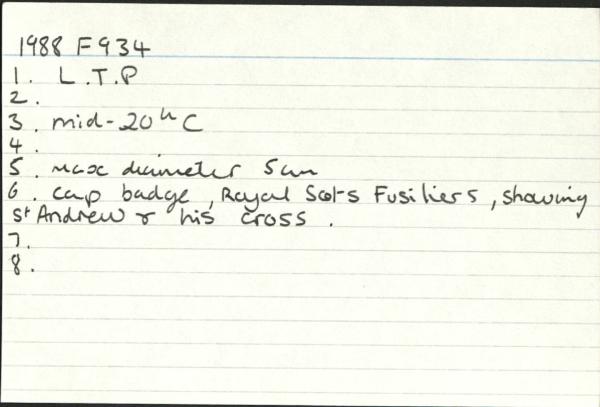 1988 F934
1. L.T.P
2.
3. mid-20th C
4.
5. max diameter 5cm
6. cap badge, Royal Scots Fusiliers, showing
St Andrew & his cross.
7.
8.